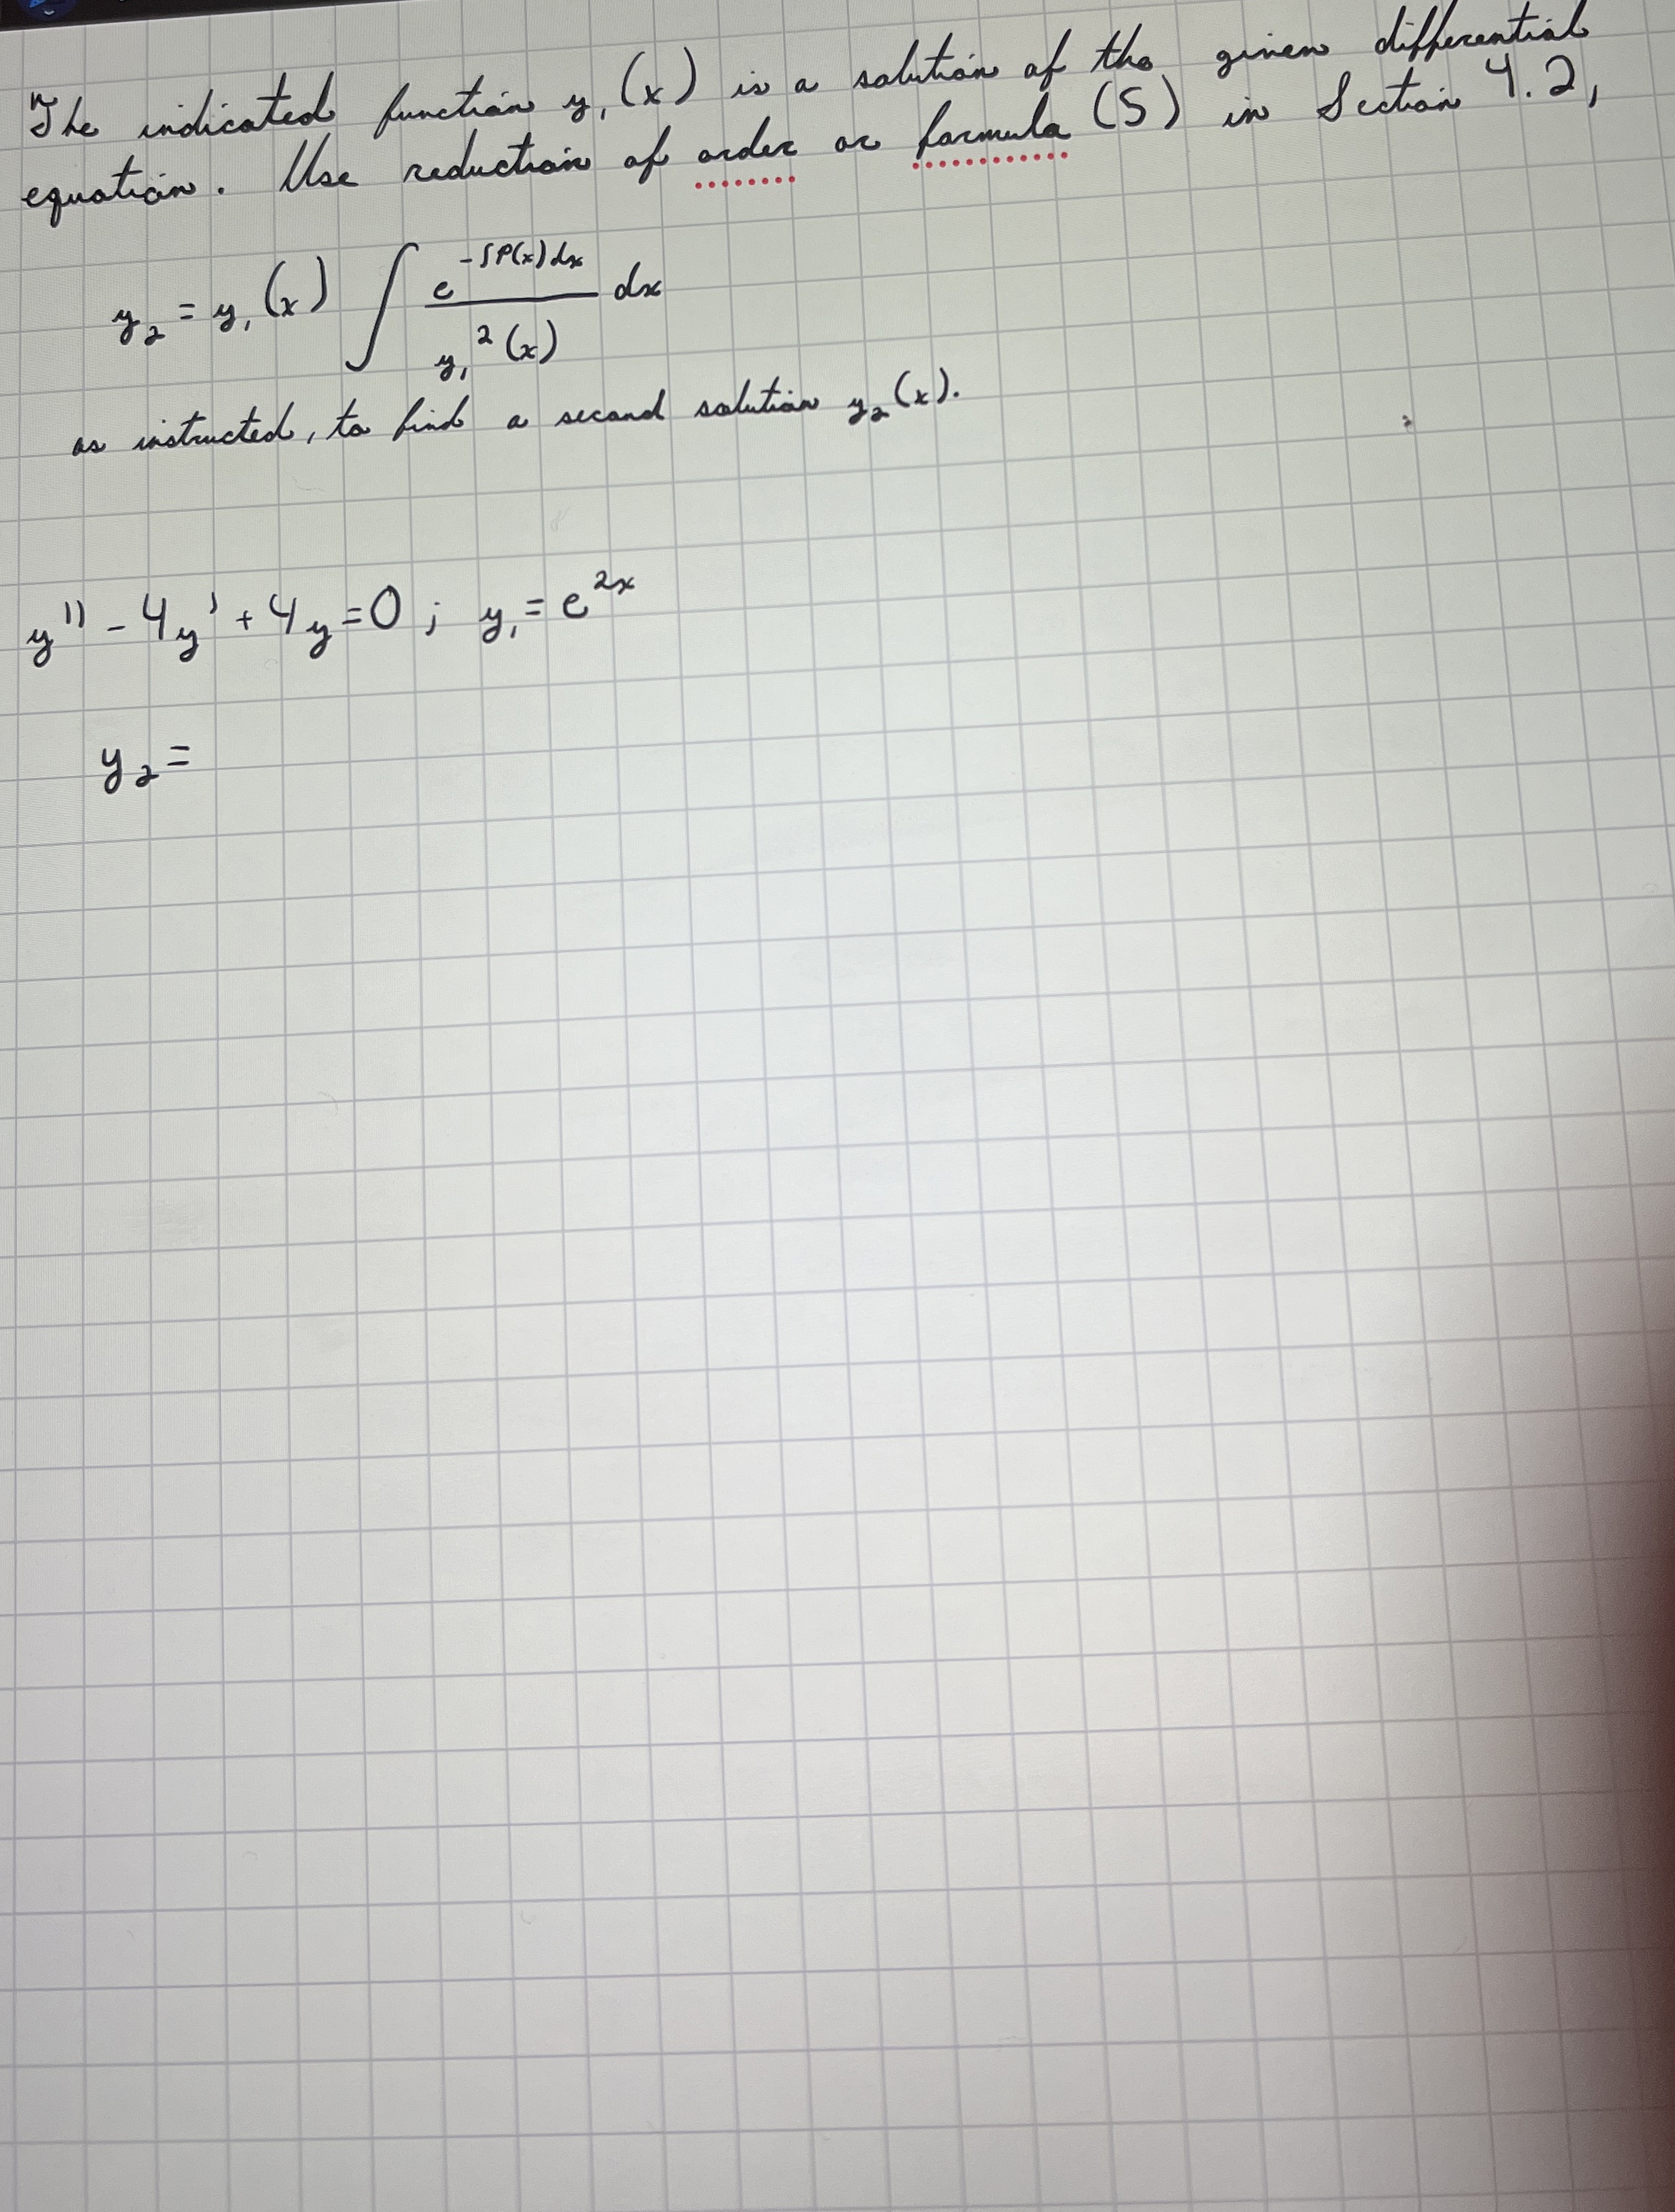 The indicated function y₁(x) is a solution of the given differential
equation. Use reduction of order or formula (5) in Section 4.2,
y₂ = y₁(x) ∫ e^(-∫P(x)dx) / y₁²(x) dx
as instructed, to find a second solution y₂(x).
y'' - 4y' + 4y = 0 ; y₁ = e^(2x)
y₂ =